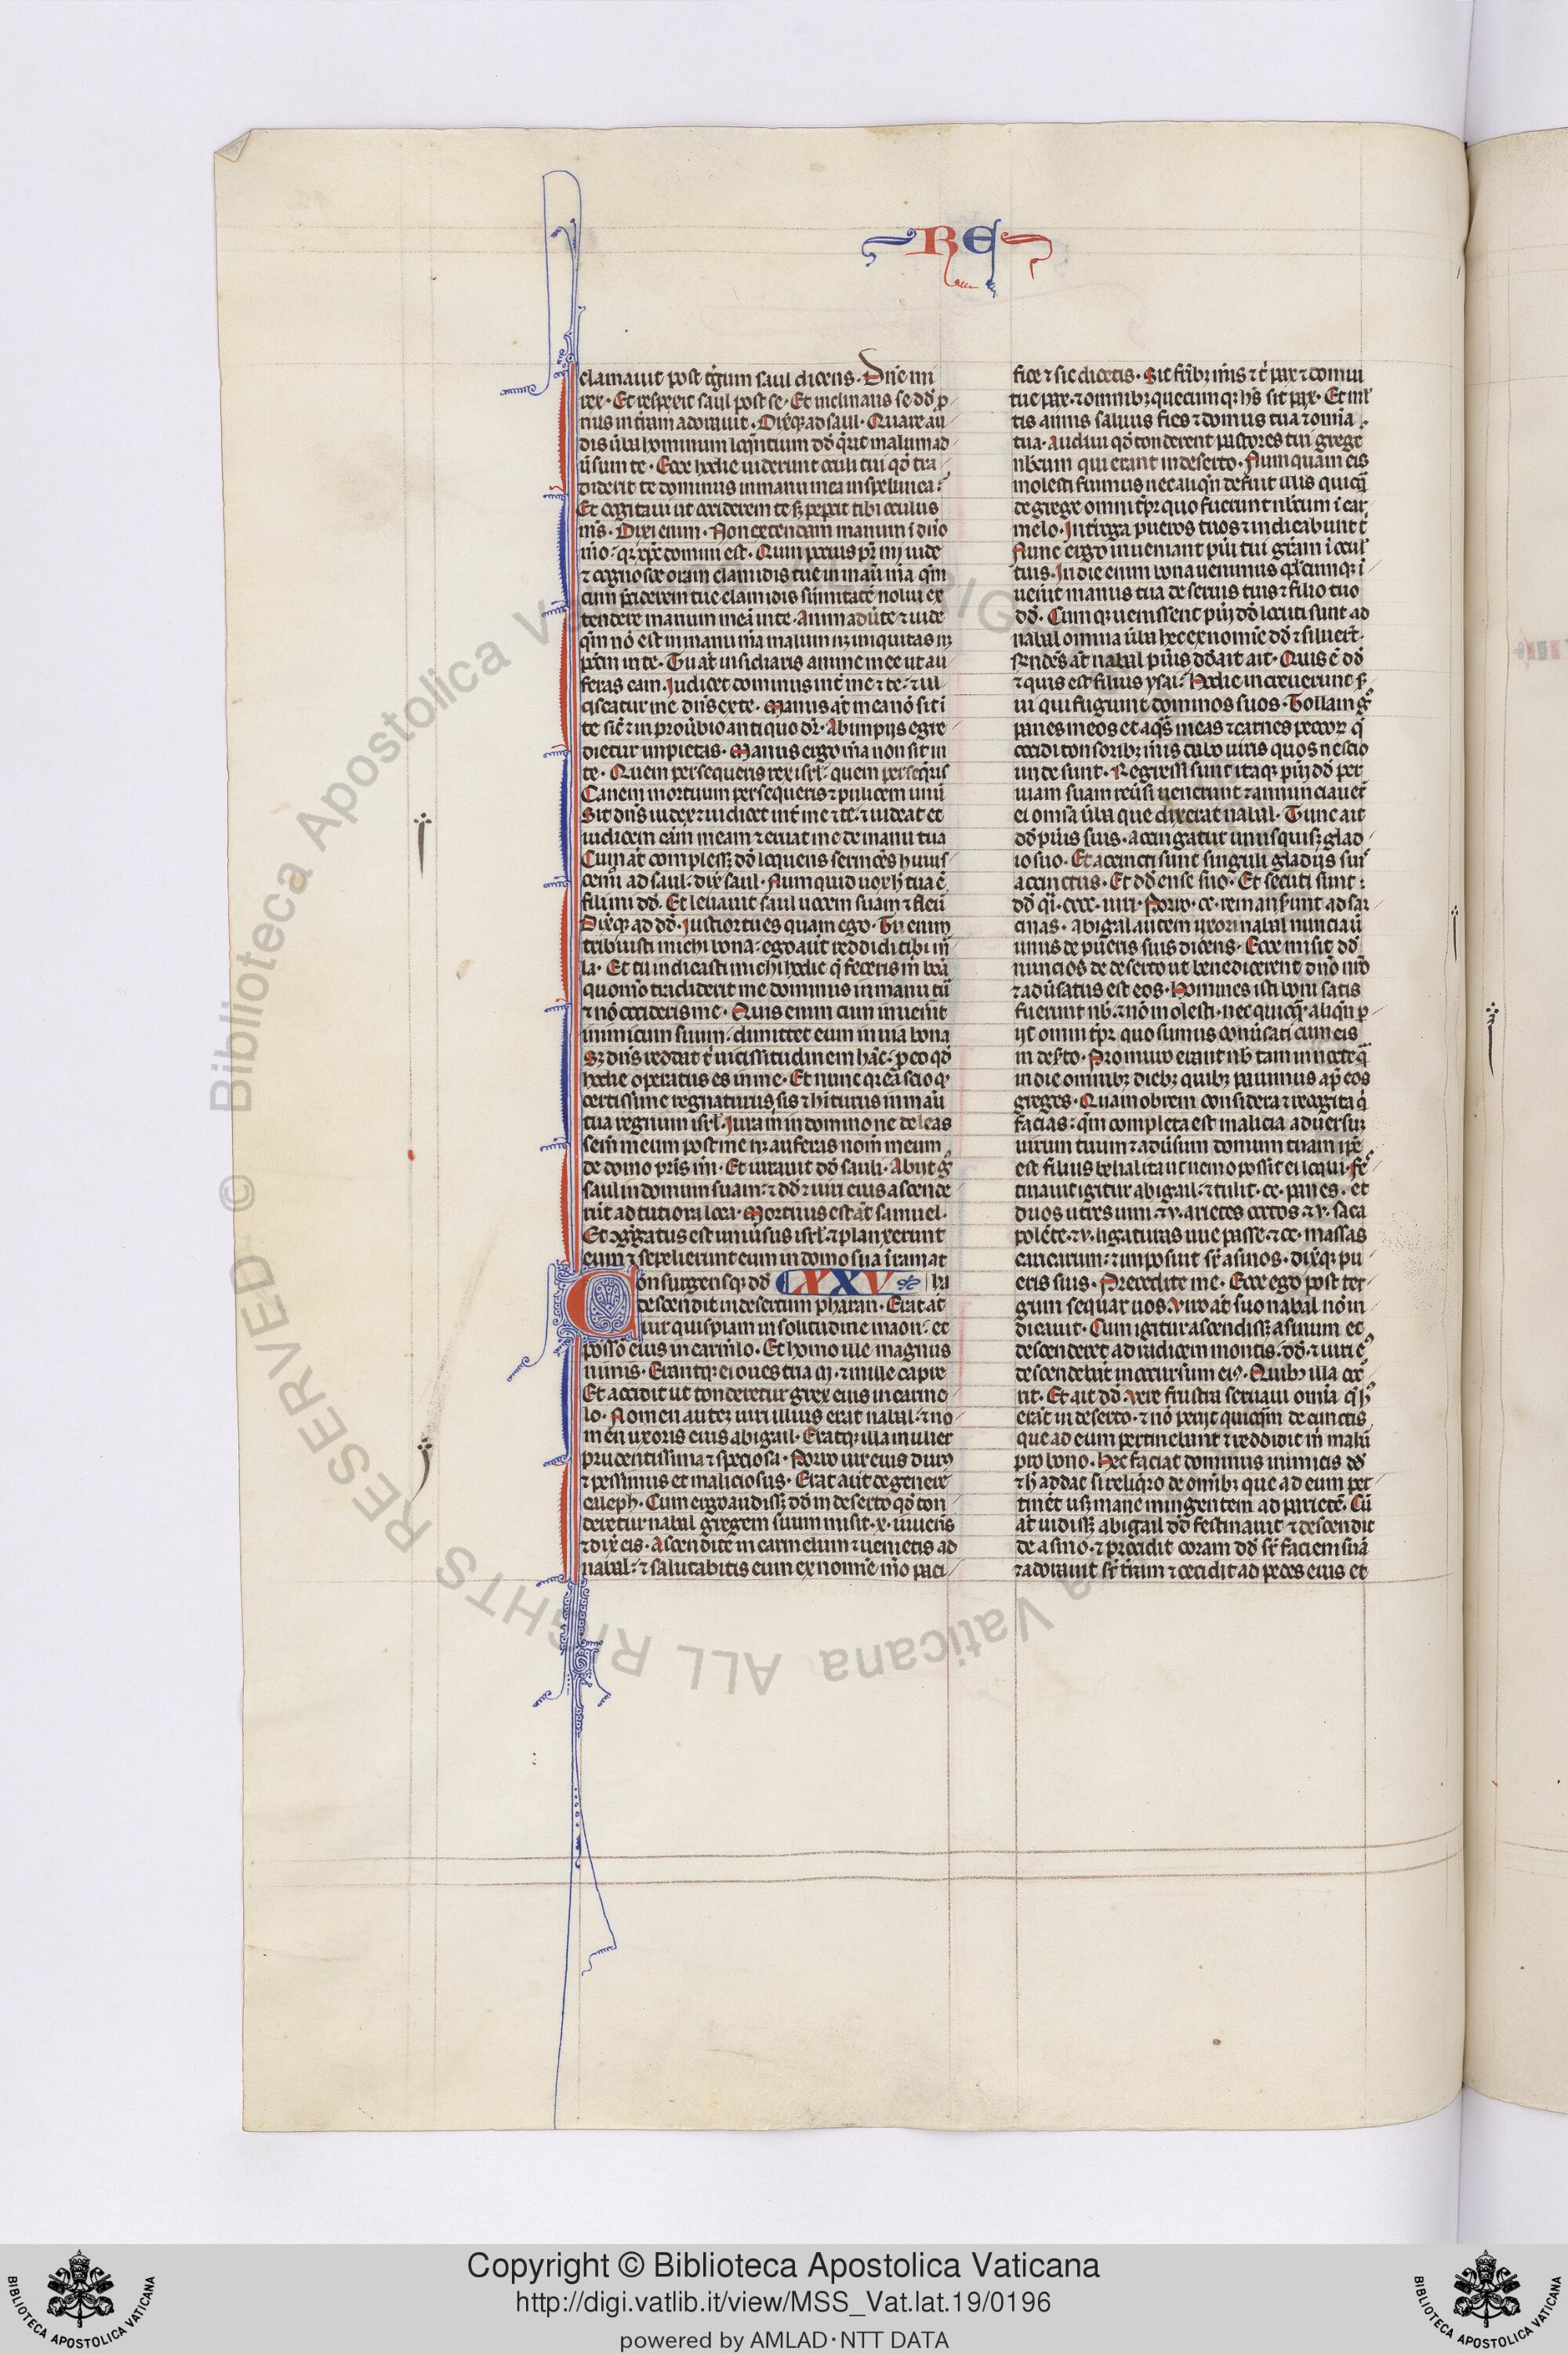 RE
clamauit post tġum saul dicens. Dn̄e mi
rex. Et respexit saul post se. Et inclinans se dd̄ p
nus in t̄ram adorauit. Dix̄q; ad saul. Quare au
dis ūba hominum loq̄ntium dd̄ q̄rit malum ad
ūsum te. Ecce hodie uiderunt oculi tui qd̄ tra
diderit te dominus in manu mea in spelunca:
Et cogitaui ut occiderem te sꝫ pepcit tibi oculus
ms̄. Dixi enim. Non extendam manum ī dn̄o
mō. qꝛ xp̄c domini est. Quin pocius pr̄ mi uide
⁊ cognosce oram clamidis tue in manū m̄a qm̄
cum p̄ciderem tue clamidis sūmitatē nolui ex
tendere manum meā in te. Animaduīte ⁊ uide
qm̄ nō est in manu m̄a malum nꝫ iniquitas nꝫ
pc̄m in te. Tu at̄ insidiaris anime mee ut au
feras eam. Iudicet dominus int̄ me ⁊ te. ⁊ ul
ciscatur me dn̄s ex te. Manus at̄ mea nō sit ī
te sic̄ ⁊ in proūbio antiquo dr̄. Ab impijs egre
dietur impietas. Manus ergo m̄a non sit in
te. Quem persequeris rex isrl̄. quem perseq̄ris
Canem mortuum persequeris ⁊ pulicem unū
Sit dn̄s iudex ⁊ iudicet int̄ me ⁊ te. ⁊ uideat et
iudicem cām meam ⁊ eruat me de manu tua
Cum at̄ complessꝫ dd̄ loquens sermōes huius
cemī ad saul. dix̄ saul. Numquid uox h̄ tua ē
fili mi dd̄. Et leuauit saul uocem suam ⁊ fleū
Dix̄q; ad dd̄. Iustior tu es quam ego. Tu enim
tribuisti michi bona. ego aūt reddidi tibi m̄
la. Et tu indicasti michi hodie q̄ feceris m̄ bōa
quomō tradiderit me dominus in manu tū
⁊ nō occideris me. Quis enim cum inuenīt
inimicum suum. dimittet eum in uia bona
Sꝫ dn̄s reddat t̄ uicissitudinem hāc. p eo qd̄
hodie operatus es in me. Et nunc qꝛ eā scio q
certissime regnaturus sis ⁊ hīturus in manū
tua regnum isrl̄. Iura m̄ in domino ne deleas
sem̄ meum post me nꝫ auferas nom̄ meum
de domo pr̄is mī. Et iurauit dd̄ sauli. Abijt ḡ
saul in domum suam. ⁊ dd̄ ⁊ uiri eius ascende
rūt ad tutiora loca. Mortuus est at̄ samuel.
Et ꝯgḡatus est uniūsus isrl̄. ⁊ planxerunt
eum ⁊ sepelierunt eum in domo sua ī ramat
Consurgensq; dd̄ XXV
descendit in desertum pharan. Erat at̄
uir quispiam in solitudine maon. et
possō eius in carmlo. Et homo ille magnus
nimis. Erantq; ei oues tria m. ⁊ mille capre
Et accidit ut tonderetur grex eius in carme
lo. Nomen autez uiri illius erat nabal. ⁊ no
men uxoris eius abigail. Eratq; illa mulier
prudentissima ⁊ speciosa. Porro uir eius dur9
⁊ pessimus et maliciosus. Erat aūt de genere
caleph. Cum ergo audissꝫ dd̄ in deserto qd̄ ton
deretur nabal gregem suum misit .x. iuuenes
⁊ dix̄ eis. Ascendite in carmelum ⁊ uenietis ad
nabal. ⁊ salutabitis eum ex nomine mō paci
fice ⁊ sic dicetis. Sit frībꝫ mīs ⁊ t̄ pax ⁊ domui
tue pax. ⁊ omnibꝫ quecumqꝫ hēs sit pax. Et ml̄
tis annis saluus fies ⁊ domus tua ⁊ omīa
tua. Audiui qd̄ tonderent pastores tui grege
nb̄cum qui erant in deserto. Numquam eis
molesti fuimus nec aliqn̄ defuit illis quicq̄
de grege omni tp̄r quo fuerunt nb̄cum ī car
melo. Int̄roga pueros tuos ⁊ indicabunt t̄
Nunc ergo inueniant pūi tui gr̄am ī ocul
tuis. In die enim bona uenimus qd̄cumqꝫ ī
uenīt manus tua da seruis tuis ⁊ filio tuo
dd̄. Cumqꝫ uenissent pūi dd̄ locuti sunt ad
nabal omnia ūba hec ex nomīe dd̄ ⁊ siluert̄.
Rn̄dēs at̄ nabal pūis dd̄ ait. Quis ē dd̄
⁊ quis est filius ysai. Hodie increuerunt s̄
ui qui fugiunt dominos suos. Tollam ḡ
panes meos et aqs̄ meas ⁊ carnes pecoꝝ q̄
occidi tonsoribꝫ mīs ⁊ dabo uiris quos nescio
unde sunt. Regressi sunt itaqꝫ pūi dd̄ per
uiam suam reūsi uenerunt ⁊ annunciauer̄
ei omīa ūba que dixerat nabal. Tunc ait
dd̄ pūis suis. Accingatur unusquisqꝫ glad
io suo. Et accincti sunt singuli gladijs suis
accinctus. Et dd̄ ense suo. Et secuti sunt
dd̄ qī .cccc. uiri. Porro .cc. remanserunt ad sar
cinas. Abigal autem uxori nabal nunciaū
unus de pueris suis dicens. Ecce misit dd̄
nuncios de deserto ut benedicerent dn̄o nr̄o
⁊ aduūsatus est eos. Homines isti boni satis
fuerunt nb̄. ⁊ nō molesti. nec quicq̄ aliqn̄ p
ijt omni tp̄r quo fuimus conuīsati cum eis
in desto. Pro muro erant nb̄ tam in nocte q̄
in die omnibꝫ diebꝫ quibꝫ pauimus ap̄ eos
greges. Quam obrem considera ⁊ recogita qd̄
facias. qm̄ completa est malicia aduersum
uirum tuum ⁊ adūsum domum tuam. ipē
est filius belial ita ut nemo possit ei loqui. Fe
tinauit igitur abigail. ⁊ tulit .cc. panes. et
duos utres uini. ⁊ .v. arietes coctos ⁊ .v. sata
polēte. ⁊ .v. ligaturas uue passe. ⁊ .cc. massas
caricarum. ⁊ imposuit sr̄ asinos. dix̄q; pu
eris suis. Precedite me. Ecce ego post ter
gum sequar uos. Viro at̄ suo nabal nō in
dicauit. Cum igitur ascendissꝫ asinum et
descenderet ad radicem montis. dd̄ ⁊ uiri e9
descendebāt in occursum ei9. Quibꝫ illa occ
rit. Et ait dd̄. Vere frustra seruaui omīa q̄ h9
erāt in deserto. ⁊ nō perijt quicq̄m de cunctis
que ad eum pertinebunt ⁊ reddidit m̄ malū
pro bono. Hec faciat dominus inimicis dd̄
⁊ h̄ addat si reliq̄ro de omībꝫ que ad eum per
tinēt usqꝫ mane mingentem ad parietē. Cū
at̄ uidissꝫ abigail dd̄ festinauit ⁊ descendit
de asino. ⁊ procidit coram dd̄ sr̄ faciem suā
⁊ adorauit sr̄ t̄ram ⁊ cecidit ad pedes eius et
© Biblioteca Apostolica Vaticana ALL RIGHTS RESERVED
Copyright © Biblioteca Apostolica Vaticana
http://digi.vatlib.it/view/MSS_Vat.lat.19/0196
powered by AMLAD·NTT DATA
BIBLIOTECA APOSTOLICA VATICANA
BIBLIOTECA APOSTOLICA VATICANA